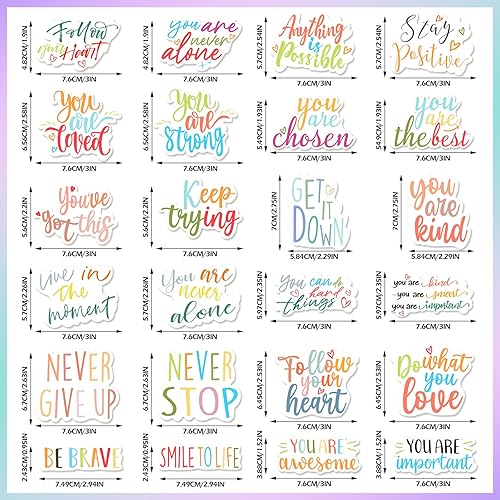 4.82CM/1.9IN
Follow
your Heart
7.6CM/3IN
4.82CM/1.9IN
you are
never
alone
7.6CM/3IN
5.7CM/2.54IN
Anything
is
Possible
7.6CM/3IN
5.7CM/2.54IN
Stay
Positive
7.6CM/3IN
6.56CM/2.58IN
You
are
loved
7.6CM/3IN
6.56CM/2.58IN
You
are
strong
7.6CM/3IN
5.49CM/1.93IN
you
are
chosen
7.6CM/3IN
54.9CM/1.93IN
you
are
the best
7.6CM/3IN
5.6CM/2.2IN
You've
got this
7.6CM/3IN
5.6CM/2.2IN
Keep
trying
7.6CM/3IN
7CM/2.75IN
GET
IT
DOWN
5.84CM/2.29IN
7CM/2.75IN
you
are
kind
5.84CM/2.29IN
5.7CM/2.26IN
Live in
the
moment
7.6CM/3IN
5.7CM/2.26IN
You are
never
alone
7.6CM/3IN
5.97CM/2.35IN
You can do
hard
things
7.6CM/3IN
5.97CM/2.35IN
you are kind
you are smart
you are important
7.6CM/3IN
6.7CM/2.63IN
NEVER
GIVE UP
7.6CM/3IN
6.7CM/2.63IN
NEVER
STOP
7.6CM/3IN
6.45CM/2.53IN
Follow
your
heart
7.6CM/3IN
6.45CM/2.53IN
Do what
you
love
7.6CM/3IN
2.43CM/0.95IN
BE BRAVE
7.49CM/2.94IN
2.43CM/0.95IN
SMILE TO LIFE
7.49CM/2.94IN
3.88CM/1.52IN
YOU ARE
awesome
7.6CM/3IN
3.88CM/1.52IN
YOU ARE
important
7.6CM/3IN